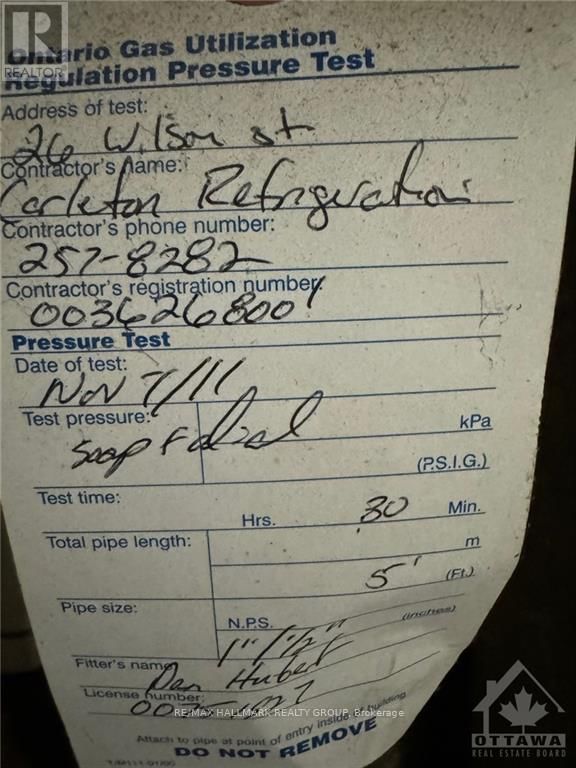 R
REALTOR
Ontario Gas Utilization
Regulation Pressure Test
Address of test:
26 Wilson st
Contractor's name:
Carleton Refrigeration
Contractor's phone number:
257-8282
Contractor's registration number:
0036268001
Pressure Test
Date of test:
Nov 7/11
Test pressure:
kPa
Soap
(P.S.I.G.)
Test time:
Hrs. 30 Min.
Total pipe length:
m
5' (Ft.)
Pipe size:
N.P.S. (inches)
1" 1/2"
Fitter's name
Dan Hubert
License number:
RE/MAX HALLMARK REALTY GROUP, Brokerage
Attach to pipe at point of entry inside of building
DO NOT REMOVE
OTTAWA
REAL ESTATE BOARD